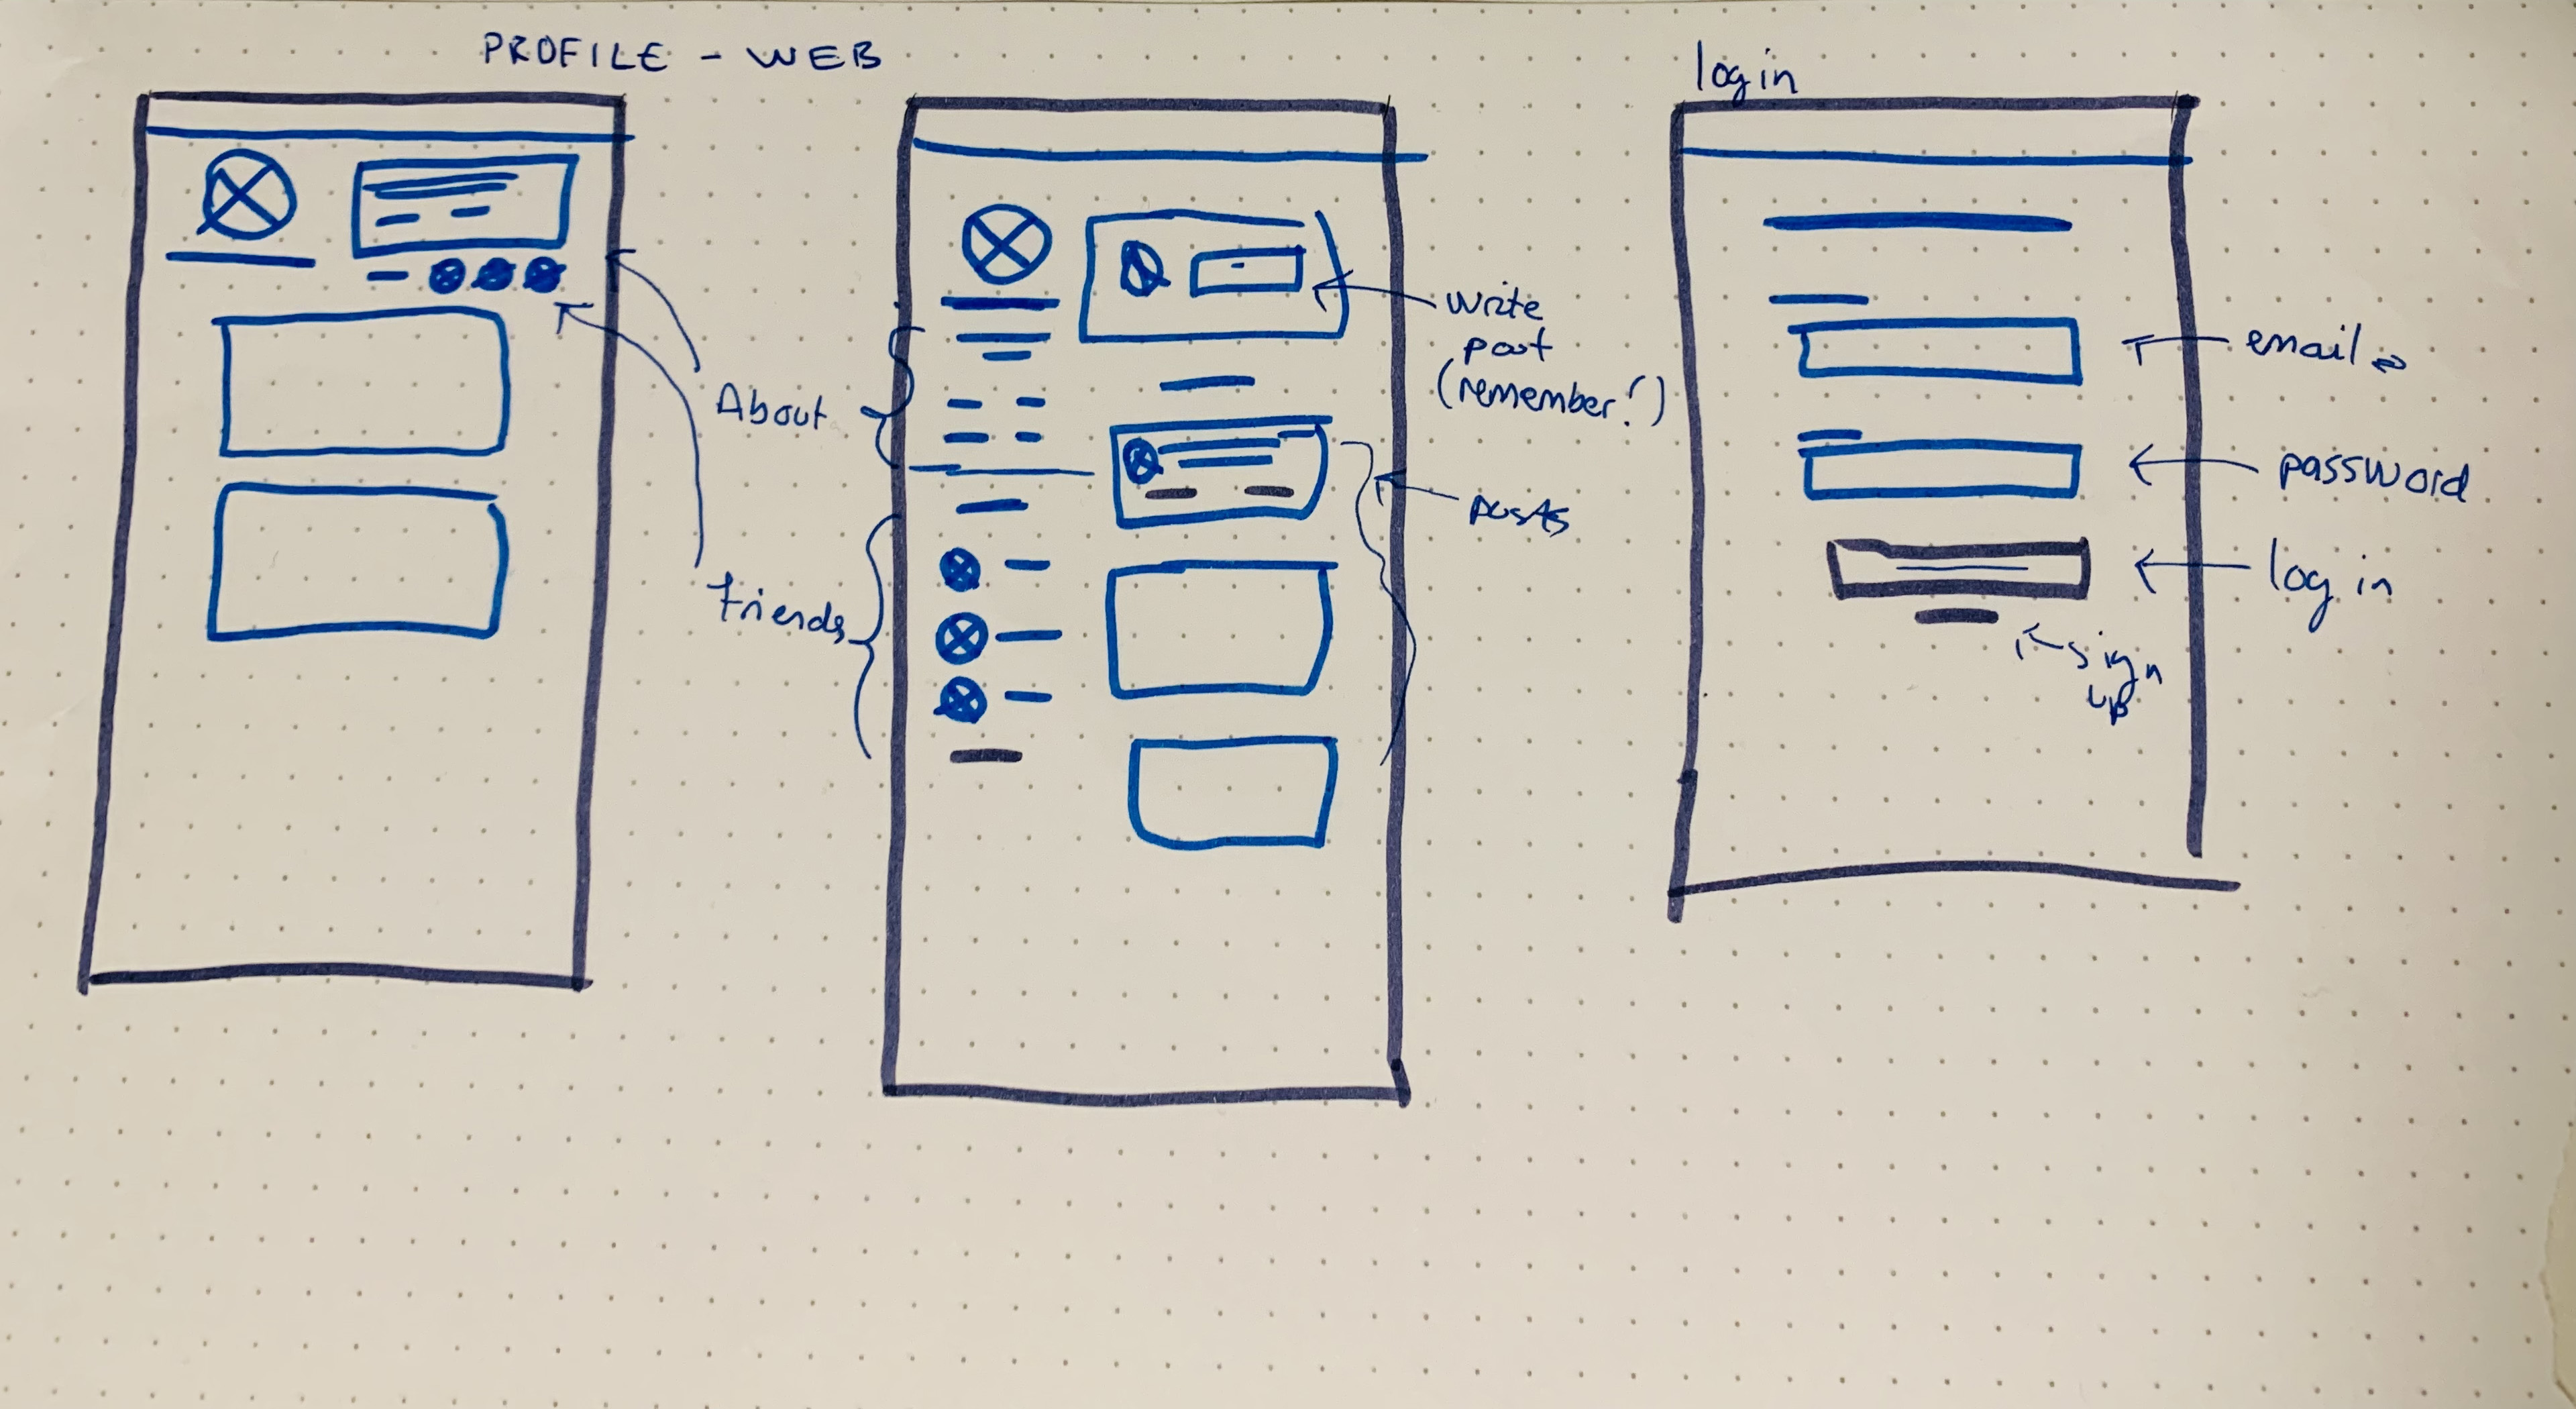 PROFILE - WEB
About
Friends
write
post
(remember!)
posts
log in
email
password
log in
sign
up